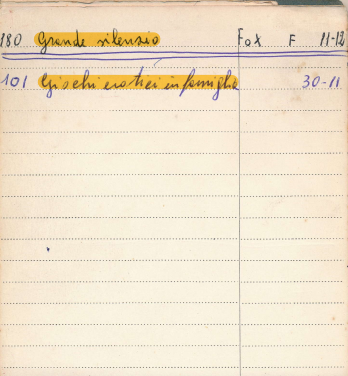 180 Grande silenzio Fox F 11-12
101 Giochi erotici in famiglia 30-11